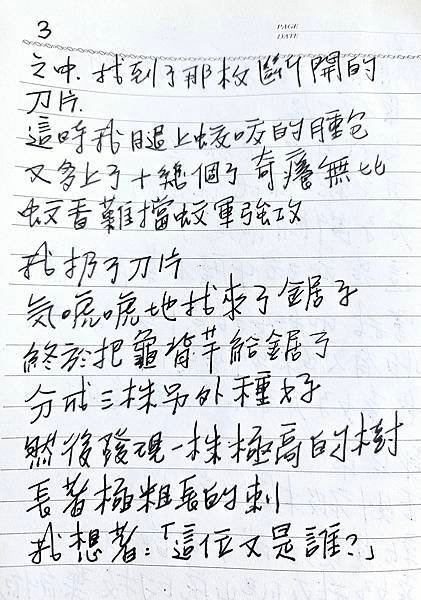 3
PAGE
DATE
之中.找到了那枚斷開的
刀片.
這時我腿上蚊咬的腫包
又多上了十幾個了奇癢無比
蚊香難擋蚊軍強攻
我扔了刀片
気唬唬地找來了鋸子
終於把龜背芋給鋸了
分成三株另外種好
然後發現一株極高的樹
長著極粗長的刺
我想著:「這位又是誰?」